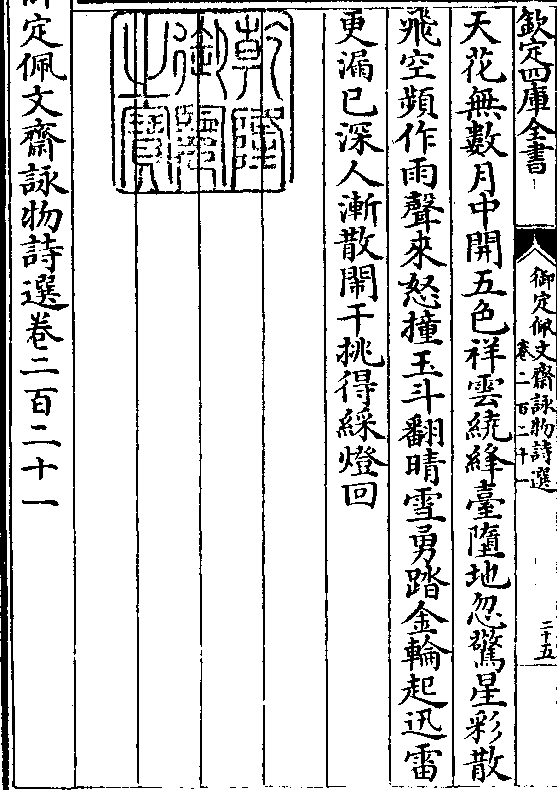 欽定四庫全書
御定佩文齋詠物詩選
卷二百二十一
二十五
天花無數月中開五色祥雲繞絳臺墮地忽驚星彩散
飛空頻作雨聲來怒撞玉斗翻晴雪勇踏金輪起迅雷
更漏已深人漸散鬧干挑得綵燈回
乾隆御覽之寶
御定佩文齋詠物詩選卷二百二十一